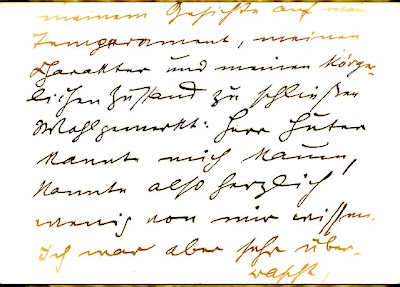 meinem Gesichte auf mein
Temperament, meinen
Charakter und meinen körper-
lichen Zustand zu schließen
Wohlgemerkt: Herr Huter
kannte mich kaum,
konnte also herzlich
wenig von mir wissen.
Ich war aber sehr über-
rascht,